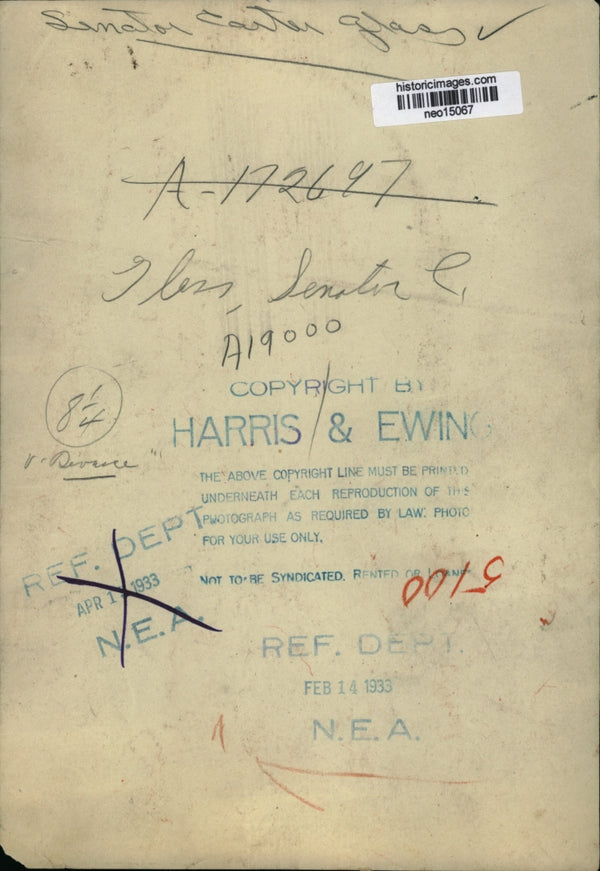 Senator Carter Glass ✓
historicimages.com
neo15067
A-172697
Glass, Senator C.
A19000
8 1/4
COPYRIGHT BY
HARRIS & EWING
THE ABOVE COPYRIGHT LINE MUST BE PRINTED
UNDERNEATH EACH REPRODUCTION OF THIS
PHOTOGRAPH AS REQUIRED BY LAW. PHOTO
FOR YOUR USE ONLY.
NOT TO BE SYNDICATED, RENTED OR LOANED
5100
REF. DEPT
APR 1 1933
N.E.A.
REF. DEPT.
FEB 14 1933
N.E.A.